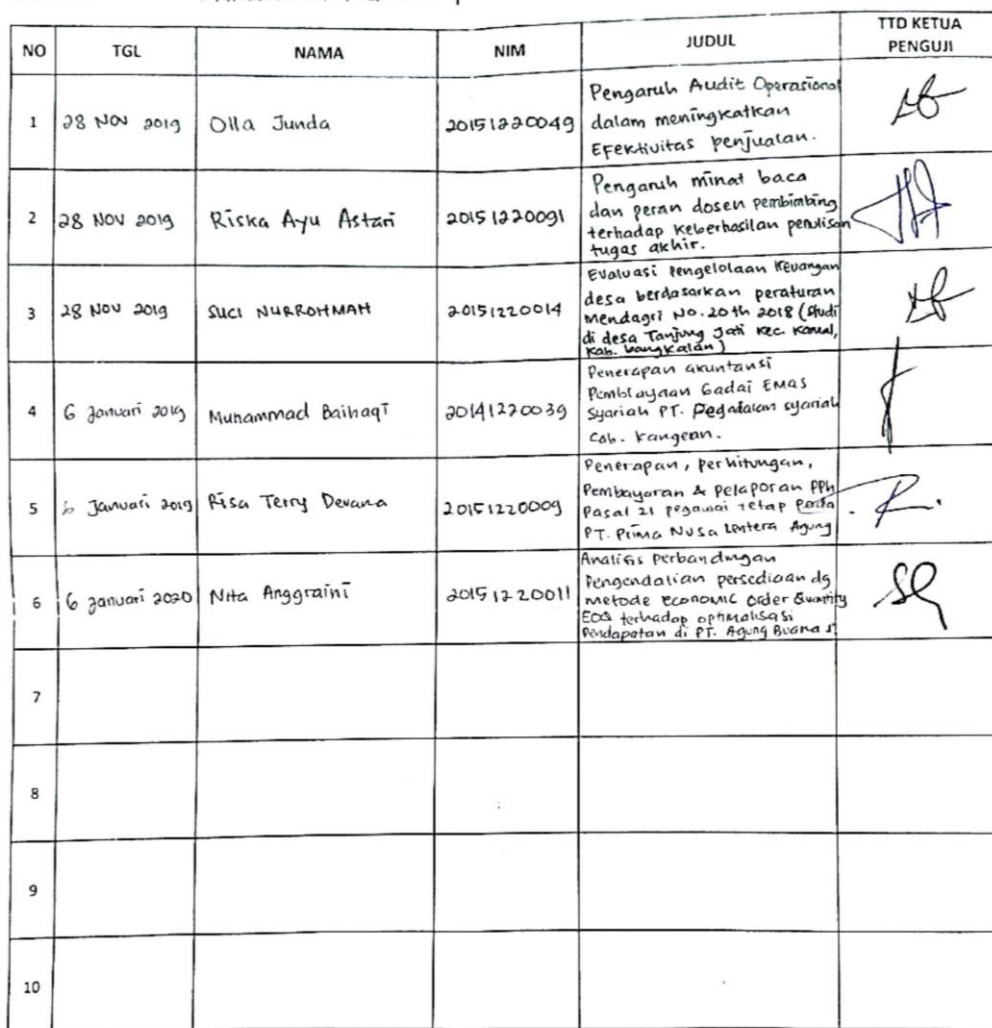 NO TGL NAMA NIM JUDUL TTD KETUA PENGUJI
1 28 NOV 2019 Olla Junda 20151220049 Pengaruh Audit Operasional
dalam meningkatkan
Efektivitas penjualan.
2 28 NOV 2019 Riska Ayu Astari 20151220091 Pengaruh minat baca
dan peran dosen pembimbing
terhadap keberhasilan penulisan
tugas akhir.
3 28 NOV 2019 SUCI NURROHMAH 20151220014 Evaluasi Pengelolaan Keuangan
desa berdasarkan peraturan
Mendagri No. 20 th 2018 (Studi
di desa Tanjung Jati Kec. Kamal,
Kab. bangkalan)
4 6 Januari 2019 Muhammad Baihaqi 20141220039 Penerapan akuntansi
Pembiayaan Gadai EMAS
Syariah PT. Pegadaian syariah
Cab. Kangean.
5 6 Januari 2019 Risa Terry Devana 20151220009 Penerapan, perhitungan,
Pembayaran & pelaporan PPh
Pasal 21 pegawai tetap pada
PT. Prima Nusa Lentera Agung
6 6 Januari 2020 Nita Anggraini 20151220011 Analisis Perbandingan
Pengendalian persediaan dg
metode economic order Quantity
EOQ terhadap optimalisasi
Pendapatan di PT. Agung Buana
7
8
9
10